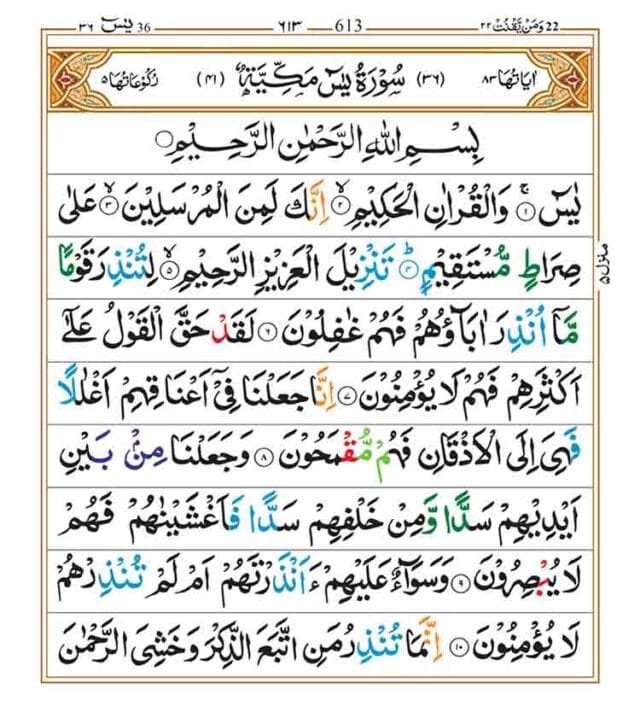 يٰسٓ 36 ٣٦ 613 ٦١٣ وَمَنْ يَّقْنُتْ 22 ٢٢
اٰيَاتُهَا ٨٣ (٣٦) سُوْرَةُ يٰسٓ مَكِّيَّةٌ (٤١) رُكُوْعَاتُهَا ٥
بِسْمِ اللّٰهِ الرَّحْمٰنِ الرَّحِيْمِ
يٰسٓ ۚ ١ وَالْقُرْاٰنِ الْحَكِيْمِ ۙ ٢ اِنَّكَ لَمِنَ الْمُرْسَلِيْنَ ۙ ٣ عَلٰى
صِرَاطٍ مُّسْتَقِيْمٍ ؕ ٤ تَنْزِيْلَ الْعَزِيْزِ الرَّحِيْمِ ۙ ٥ لِتُنْذِرَ قَوْمًا
مَّاۤ اُنْذِرَ اٰبَآؤُهُمْ فَهُمْ غٰفِلُوْنَ ٦ لَقَدْ حَقَّ الْقَوْلُ عَلٰۤى
اَكْثَرِهِمْ فَهُمْ لَا يُؤْمِنُوْنَ ٧ اِنَّا جَعَلْنَا فِيْۤ اَعْنَاقِهِمْ اَغْلٰلًا
فَهِيَ اِلَى الْاَذْقَانِ فَهُمْ مُّقْمَحُوْنَ ٨ وَجَعَلْنَا مِنْۢ بَيْنِ
اَيْدِيْهِمْ سَدًّا وَّمِنْ خَلْفِهِمْ سَدًّا فَاَغْشَيْنٰهُمْ فَهُمْ
لَا يُبْصِرُوْنَ ٩ وَسَوَآءٌ عَلَيْهِمْ ءَاَنْذَرْتَهُمْ اَمْ لَمْ تُنْذِرْهُمْ
لَا يُؤْمِنُوْنَ ١٠ اِنَّمَا تُنْذِرُ مَنِ اتَّبَعَ الذِّكْرَ وَخَشِيَ الرَّحْمٰنَ
منزل ٥